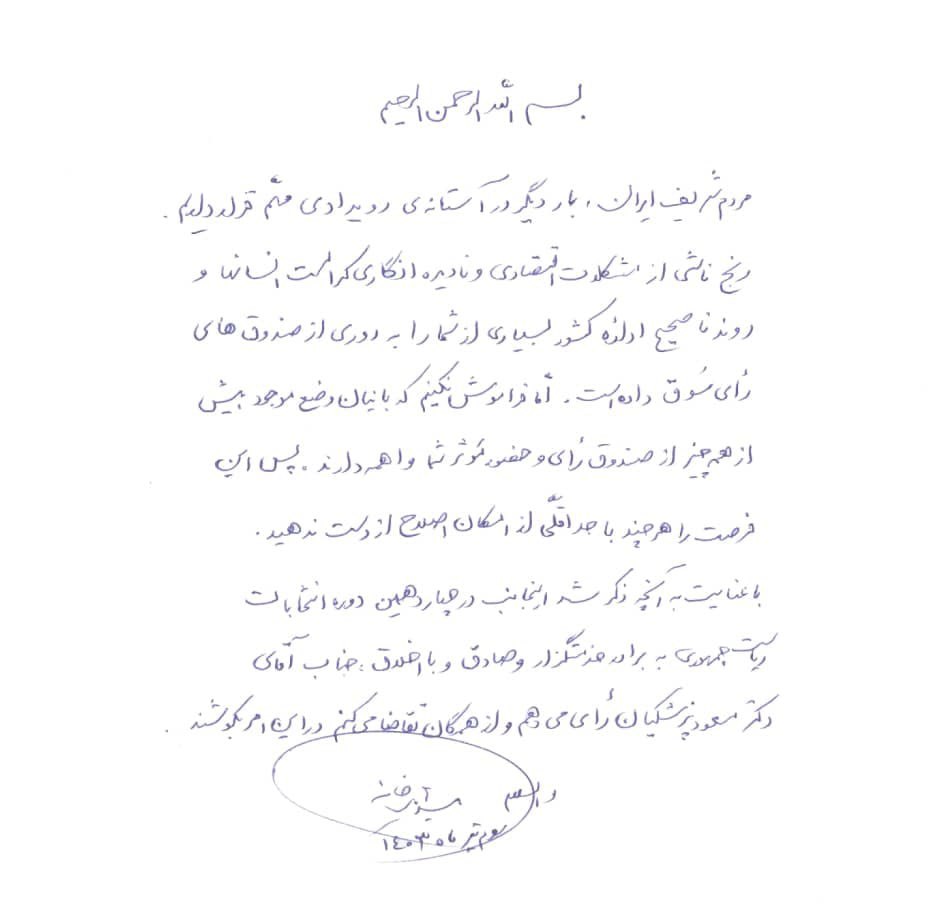 بسم الله الرحمن الرحیم
مردم شریف ایران، بار دیگر در آستانه‌ی رویدادی مهّم قرار داریم.
رنج ناشی از مشکلات اقتصادی و نادیده انگاری کرامت انسانها و
روند ناصحیح اداره کشور بسیاری از شما را به دوری از صندوق های
رأی سُوق داده است. امّا فراموش نکنیم که بانیان وضع موجود بیش
از همه چیز از صندوق رأی و حضور مُوثر شما واهمه دارند. پس این
فرصت را هرچند با حداقلّی از امکان اصلاح از دست ندهید.
با عنایت به آنچه ذکر شد اینجانب در چهاردهمین دوره انتخابات
ریاست جمهوری به برادر خدمتگزار و صادق و با اخلاق، جناب آقای
دکتر مسعود پزشکیان رأی می دهم و از همگان تقاضا می کنم در این امر بکوشند.
والسلام
سوم تیر ماه ۱۴۰۳